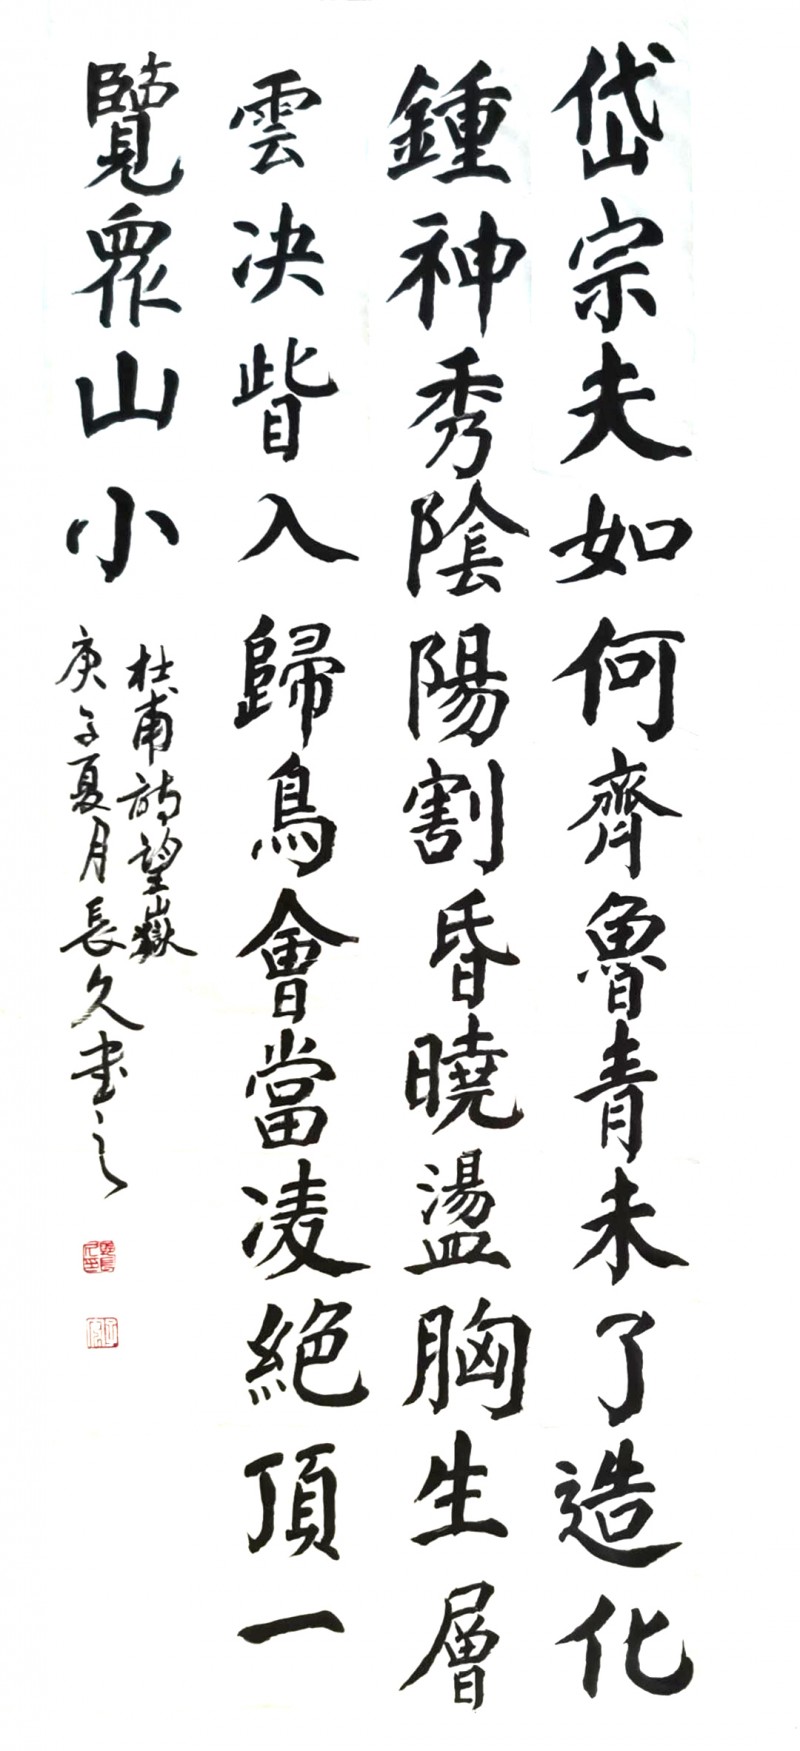 岱宗夫如何齊魯青未了造化
鍾神秀陰陽割昏曉盪胸生層
雲决眥入歸鳥會當凌絶頂一
覽眾山小
杜甫詩望嶽
庚子夏月長久書之